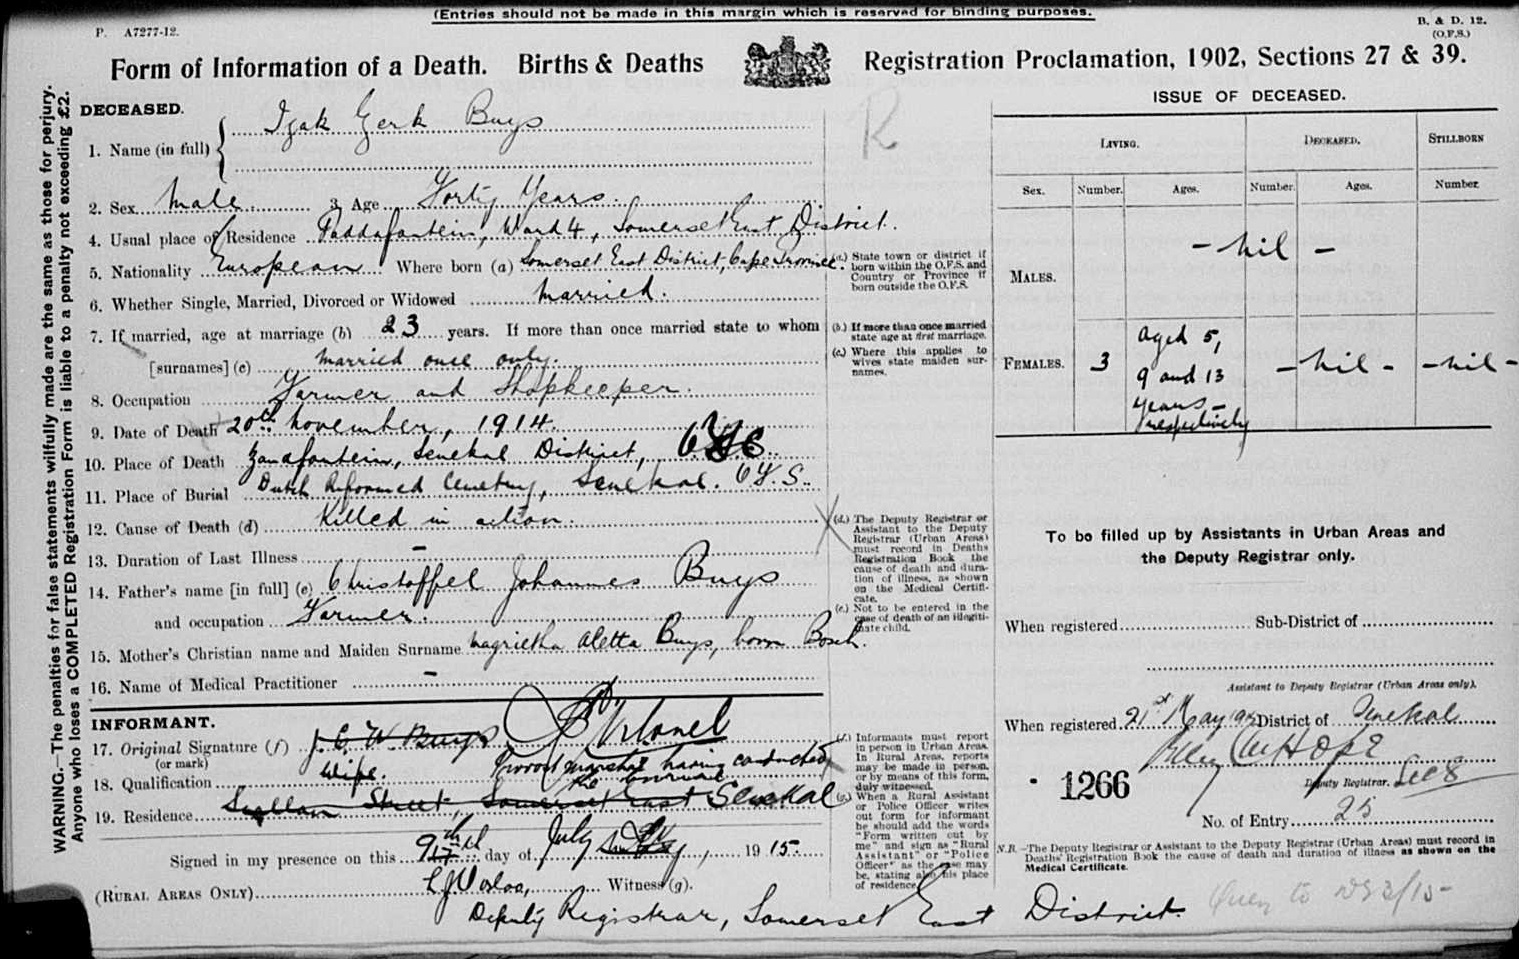 (Entries should not be made in this margin which is reserved for binding purposes.
P. A7277-12.
B. & D. 12.
(O.F.S.)
Form of Information of a Death. Births & Deaths Registration Proclamation, 1902, Sections 27 & 39.
WARNING.—The penalties for false statements wilfully made are the same as those for perjury.
Anyone who loses a COMPLETED Registration Form is liable to a penalty not exceeding £2.
DECEASED.
1. Name (in full) Izak Gerk Buys
R
2. Sex Male. 3. Age Forty Years.
4. Usual place of Residence Paddafontein, Ward 4, Somerset East District.
5. Nationality European Where born (a) Somerset East District, Cape Province.
6. Whether Single, Married, Divorced or Widowed Married.
7. If married, age at marriage (b) 23 years. If more than once married state to whom
[surnames] (c) married once only.
8. Occupation Farmer and Shopkeeper.
9. Date of Death 20th November, 1914.
10. Place of Death Zandfontein, Senekal District, OFS
11. Place of Burial Dutch Reformed Cemetery, Senekal. O.F.S.
12. Cause of Death (d) Killed in action.
13. Duration of Last Illness –
14. Father's name [in full] (e) Christoffel Johannes Buys
and occupation Farmer.
15. Mother's Christian name and Maiden Surname Magrietha Aletta Buys, born Bosch.
16. Name of Medical Practitioner –
INFORMANT.
17. Original Signature (f) J. C. W. Buys
(or mark)
18. Qualification Wife. Provost Marshal having conducted
the
19. Residence Street, Somerset East Senekal
Signed in my presence on this day of July, 1915.
(RURAL AREAS ONLY) Witness (g).
Deputy Registrar, Somerset East District.
(a.) State town or district if
born within the O.F.S. and
Country or Province if
born outside the O.F.S.
(b.) If more than once married
state age at first marriage.
(c.) Where this applies to
wives state maiden sur-
names.
(d.) The Deputy Registrar or
Assistant to the Deputy
Registrar (Urban Areas)
must record in Deaths
Registration Book the
cause of death and dura-
tion of illness, as shown
on the Medical Certifi-
cate.
(e.) Not to be entered in the
case of death of an illegiti-
mate child.
(f.) Informants must report
in person in Urban Areas.
In Rural Areas, reports
may be made in person,
or by means of this form,
duly witnessed.
(g.) When a Rural Assistant
or Police Officer writes
out form for informant
he should add the words
"Form written out by
me" and sign as "Rural
Assistant" or "Police
Officer" as the case may
be, stating also his place
of residence.
ISSUE OF DECEASED.
LIVING. DECEASED. STILLBORN
Sex. Number. Ages. Number. Ages. Number.
MALES. – nil –
FEMALES. 3 aged 5, 9 and 13 years – respectively – nil – – nil –
To be filled up by Assistants in Urban Areas and
the Deputy Registrar only.
When registered Sub-District of
Assistant to Deputy Registrar (Urban Areas only).
When registered 21st May 1915 District of Senekal
1266
Deputy Registrar.
No. of Entry 25
N.B.—The Deputy Registrar or Assistant to the Deputy Registrar (Urban Areas) must record in
Deaths' Registration Book the cause of death and duration of illness as shown on the
Medical Certificate.